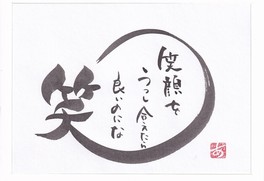 笑顔を
うつし合えたら
良いのにな
笑